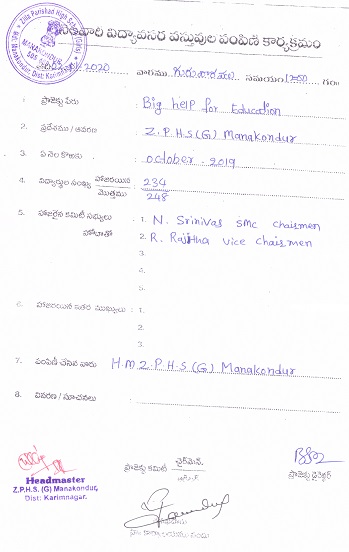 Zilla Parishad High School (Girls)
MANAKONDUR
Mdl: Manakondur, Dist: Karimnagar
విద్యావసర వస్తువుల పంపిణి కార్యక్రమం
2020 వారము గురువారము సమయం 12-50 గం॥
1. ప్రాజెక్టు పేరు : Big help for Education
2. ప్రదేశము / ఆవరణ : Z.P.H.S (G) Manakondur
3. ఏ నెల కొఱకు : october - 2019
4. విద్యార్థుల సంఖ్య హాజరయిన 234
మొత్తము 248
5. హాజరైన కమిటీ సభ్యులు : 1. N. Srinivas smc chairmen
హోదాతో 2. R. Rajitha vice chairmen
3.
4.
5.
6. హాజరయిన ఇతర ముఖ్యులు : 1.
2.
3.
7. పంపిణీ చేసిన వారు H.M.Z.P.H.S (G) Manakondur
8. వివరణ / సూచనలు :
Headmaster
Z.P.H.S. (G) Manakondur,
Dist: Karimnagar.
ప్రాజెక్టు కమిటీ ఛైర్మెన్.
ప్రాజెక్టు డైరెక్టర్